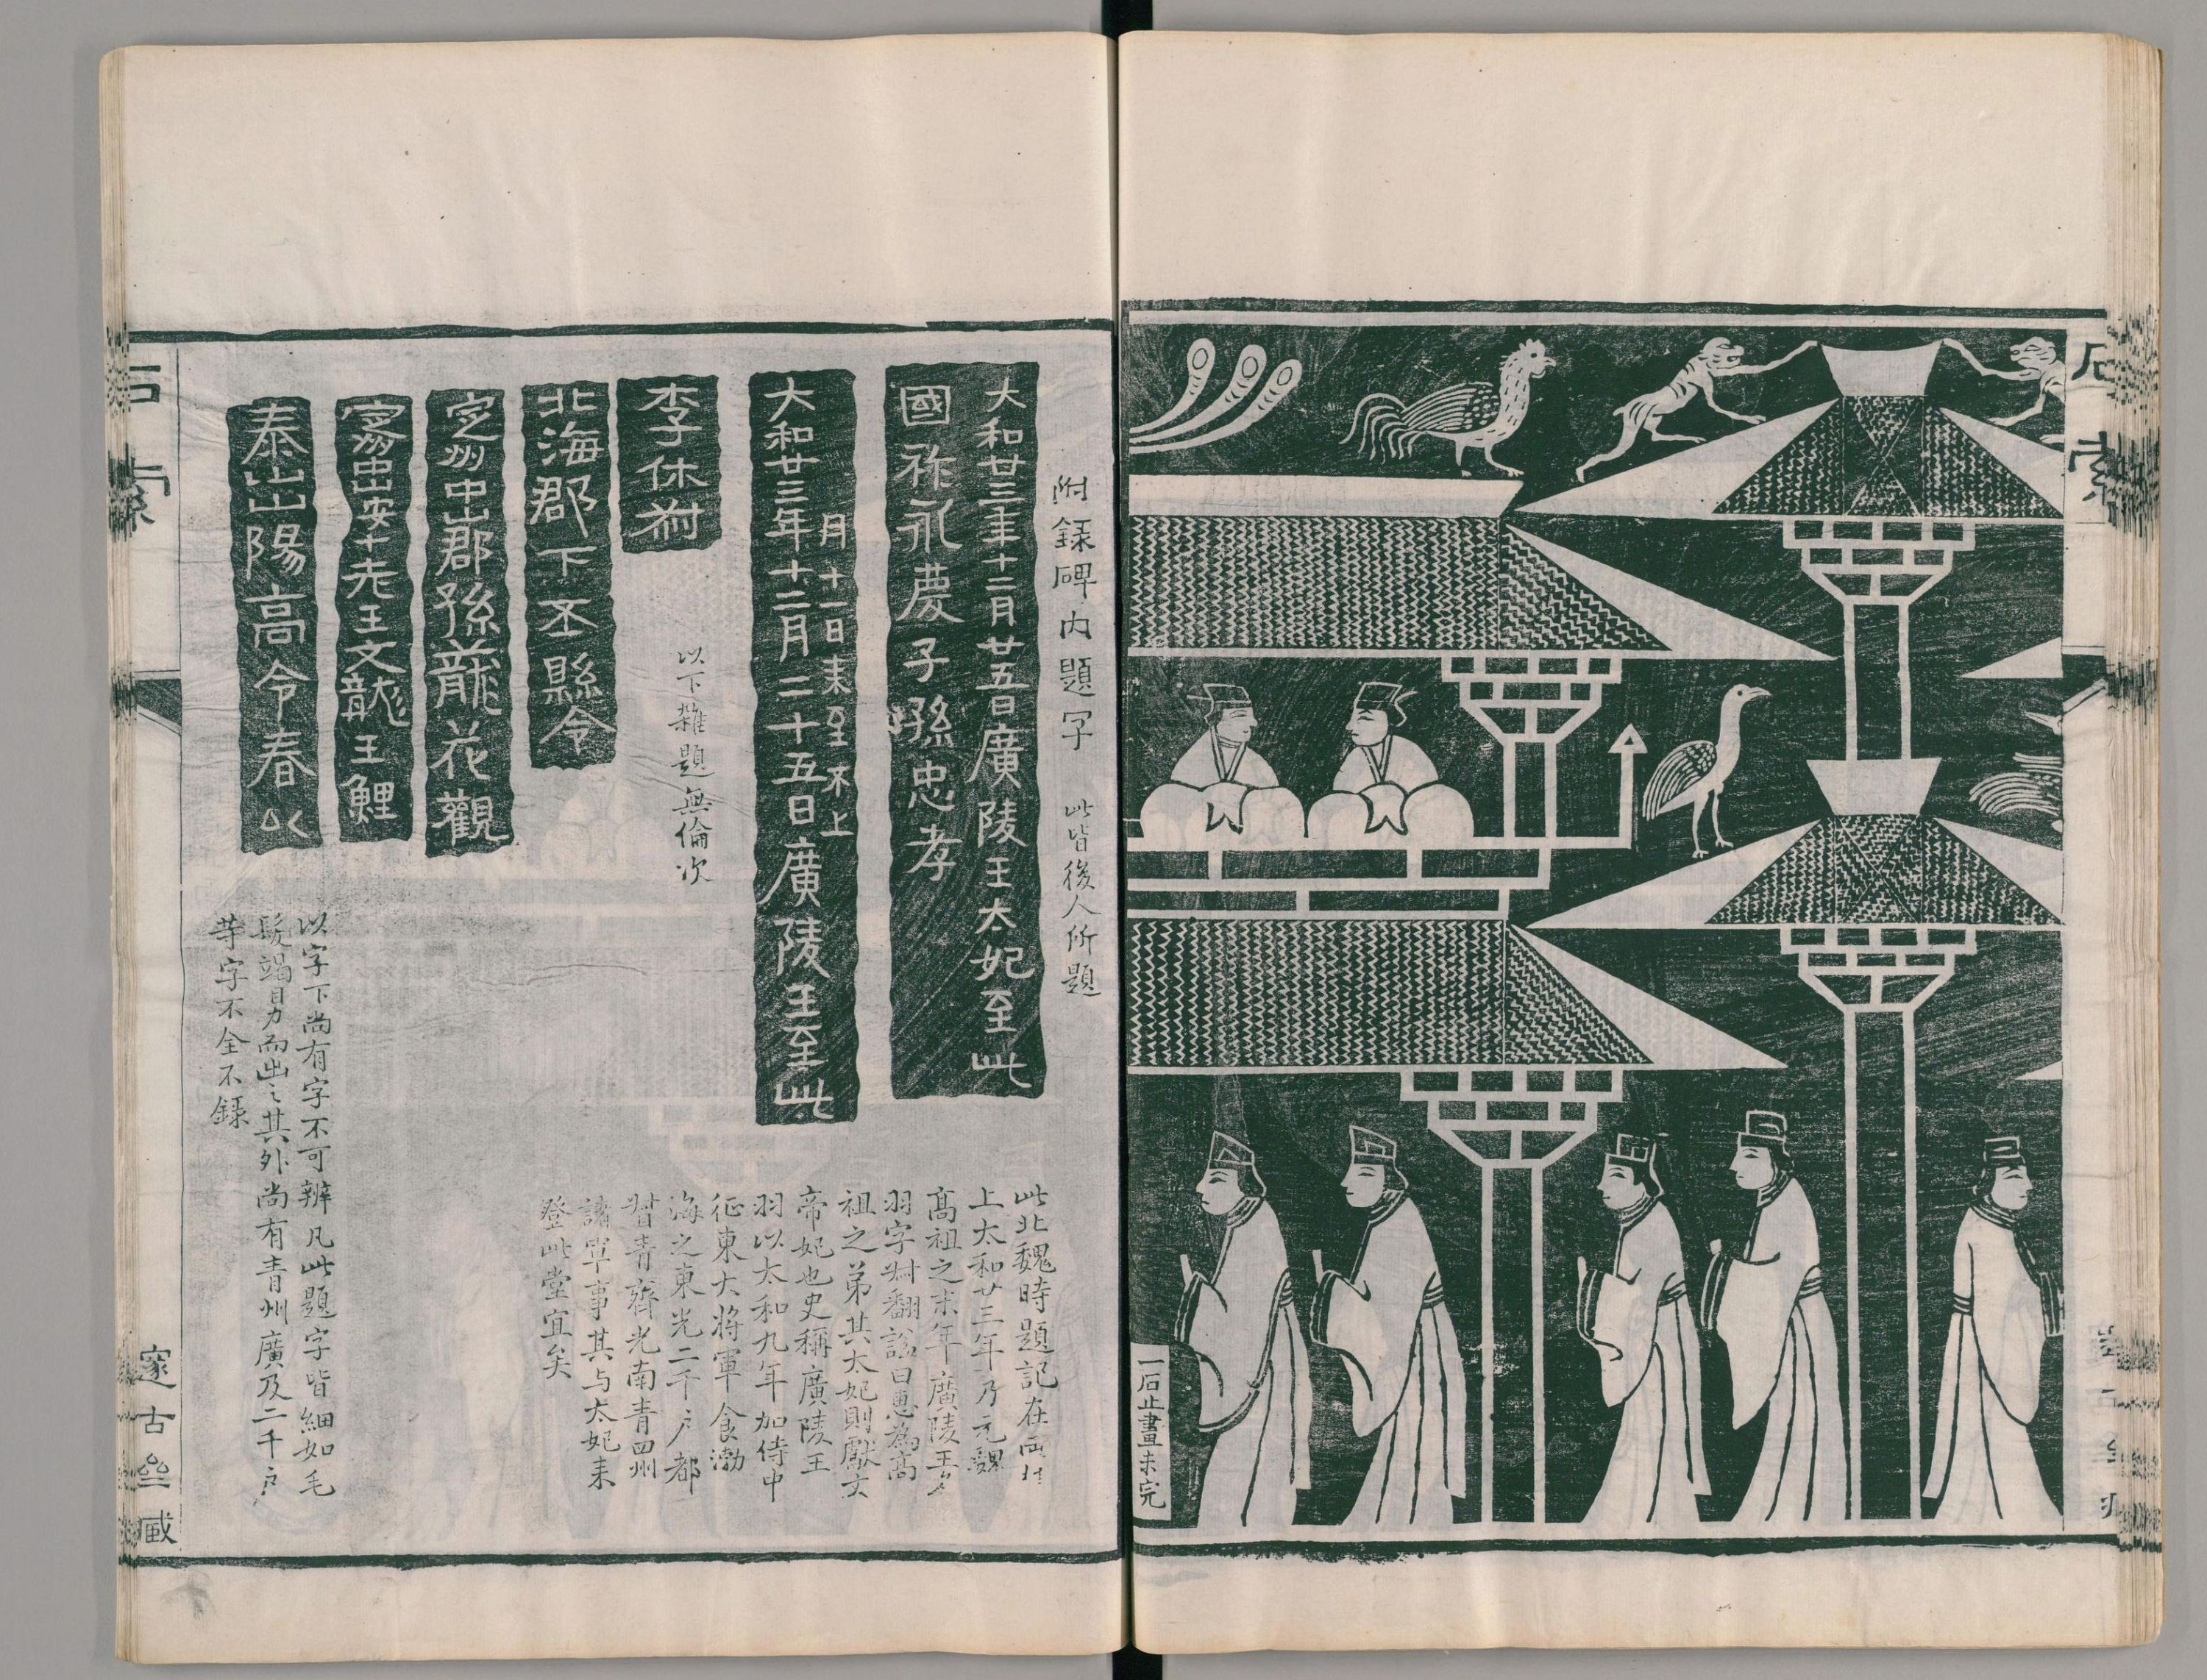 石索
一石止畫未完
附録碑内題字 此皆後人所題
大和廿三年十二月廿五日廣陵王太妃至此
國祚永慶子孫忠孝
月十一日来至不上
大和廿三年十二月二十五日廣陵王至此
以下雜題無倫次
李休
北海郡下丕縣令
定州中山郡孫龍花觀
安十老王文龍王鯉
泰山山陽高令春以
此北魏時題記在
上太和廿三年乃元魏
高祖之末年廣陵王
羽字叔翻諡曰惠為高
祖之弟其太妃則獻文
帝妃也史稱廣陵王
羽以太和九年加侍中
征東大將軍食渤
海之東光二千戶都
督青齊光南青四州
諸軍事其与太妃来
登此堂宜矣
以字下尚有字不可辨凡此題字皆細如毛
髮竭目力而出之其外尚有青州廣及二千戶
等字不全不録
石索
邃古坒臧